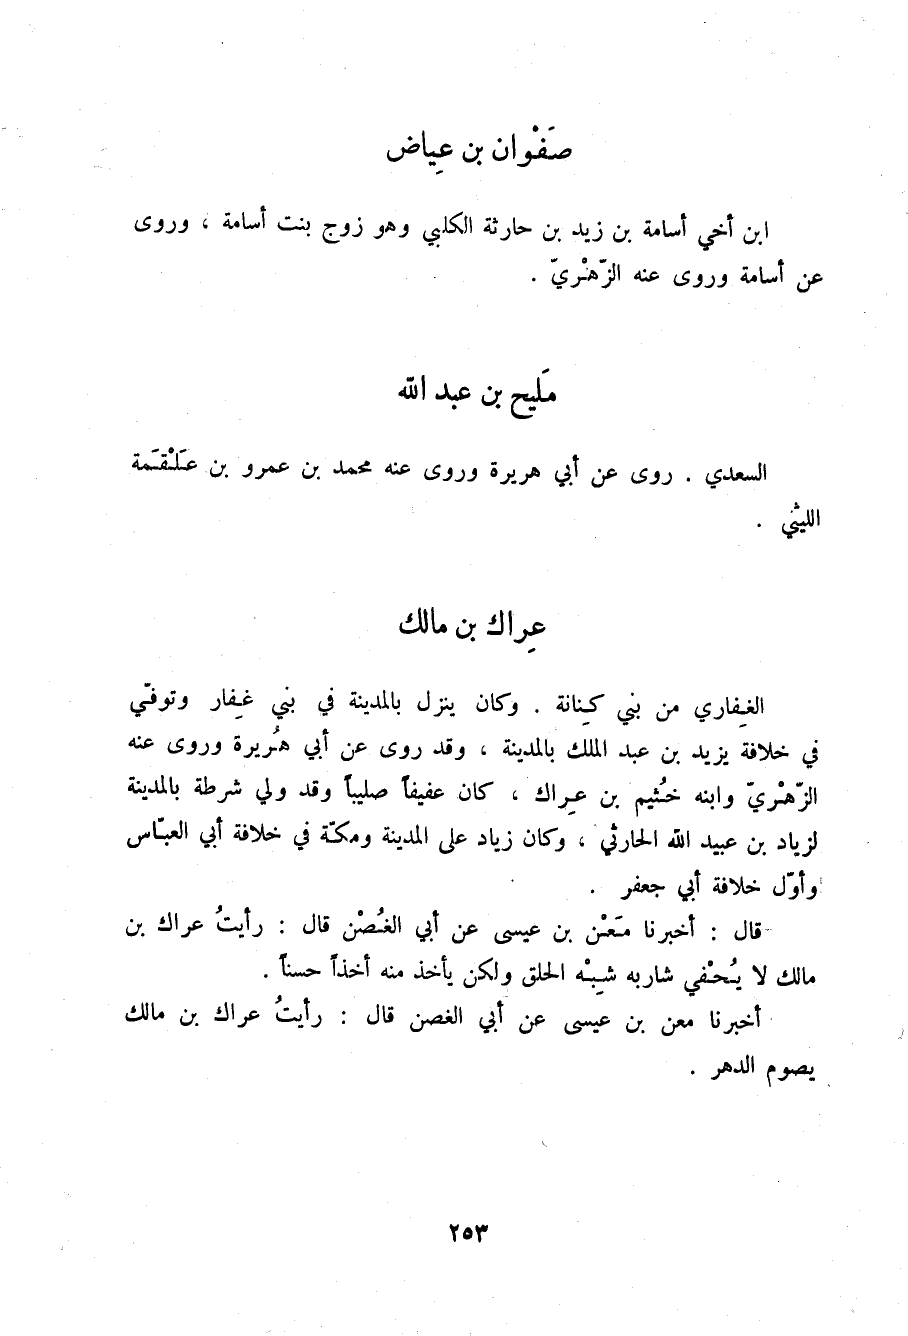 صَفْوان بن عِياض
ابن أخي أسامة بن زيد بن حارثة الكلبي وهو زوج بنت أسامة ، وروى
عن أسامة وروى عنه الزّهْريّ .
مَليح بن عبد الله
السعدي . روى عن أبي هريرة وروى عنه محمد بن عمرو بن عَلْقَمة
الليثي .
عِراك بن مالك
الغِفاري من بني كِنانة . وكان ينزل بالمدينة في بني غِفار وتوفّي
في خلافة يزيد بن عبد الملك بالمدينة ، وقد روى عن أبي هُريرة وروى عنه
الزّهْريّ وابنه خُثيم بن عِراك ، كان عفيفاً صليباً وقد ولي شرطة بالمدينة
لزياد بن عبيد الله الحارثي ، وكان زياد على المدينة ومكّة في خلافة أبي العبّاس
وأوّل خلافة أبي جعفر .
قال : أخبرنا مَعْن بن عيسى عن أبي الغُصْن قال : رأيتُ عراك بن
مالك لا يُحْفي شاربه شِبْه الحلق ولكن يأخذ منه أخذاً حسناً .
أخبرنا معن بن عيسى عن أبي الغصن قال : رأيتُ عراك بن مالك
يصوم الدهر .
٢٥٣